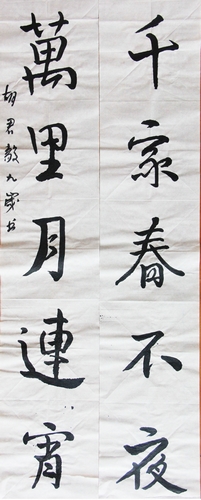 千家春不夜
萬里月連宵
胡君毅九歲书